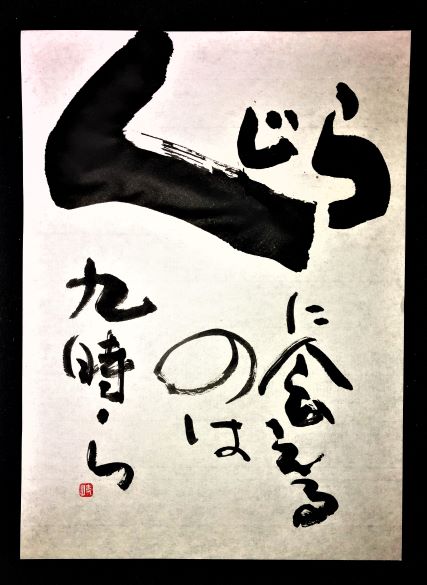 くじら
に会える
のは
九時から